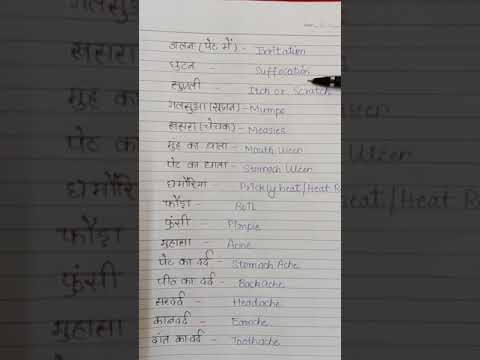 जलन (पेट में) - Irritation
घुटन - Suffocation
खुजली - Itch or Scratch
गलसुआ (सूजन) - Mumps
खसरा (चेचक) - Measles
मुंह का छाला - Mouth Ulcer
पेट का छाला - Stomach Ulcer
घमौरिया - Prickly heat/Heat Ra
फोड़ा - Boil
फुंसी - Pimple
मुहासा - Acne
पेट का दर्द - Stomach Ache
पीठ का दर्द - Backache
सरदर्द - Headache
कानदर्द - Earache
दांत का दर्द - Toothache